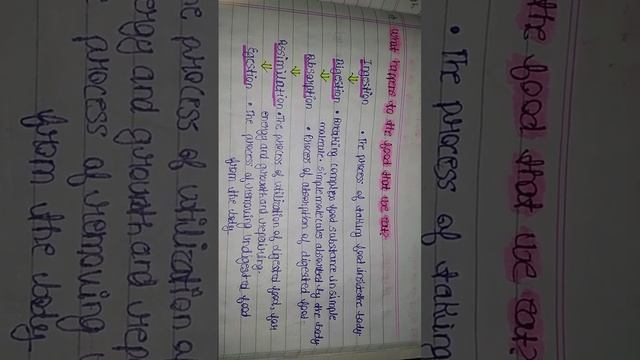 What happens to the food that we eat?
Ingestion • The process of taking food inside the body.
Digestion • Breaking complex food substance in simple
molecules. simple molecules absorbed by the body
Absorption • Process of absorption of digested food.
Assimilation • The process of utilization of digested food, for
energy and growth and repairing.
Egestion • The process of removing undigested food
from the body.
the food that we eat?
• The process of taking
the process of utilization
energy and growth and rep
process of removing
from the body